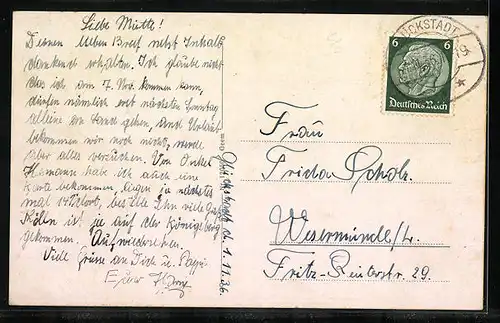 Liebe Mutti!
Deinen lieben Brief nebst Inhalt
dankend erhalten. Ich glaube nicht
das ich am 7. Nov. kommen kann,
dürfen nämlich erst nächsten Sonntag
alleine an Land gehen, und Urlaub
bekommen wir noch nicht, werde
aber alles versuchen. Von Onkel
Hamann habe ich auch eine
Karte bekommen,
mal bestelle Ihn viele Grüße
Kölln ist ja auf der Königsberg
gekommen. Aufwiedersehen.
Viele Grüsse an Dich u. Pappi
Euer
Glückstadt d. 1.11.36.
GLÜCKSTADT
6 6
Deutsches Reich
Frau
Frida Scholz.
Wesermünde/L.
Fritz-Reuterstr. 29.